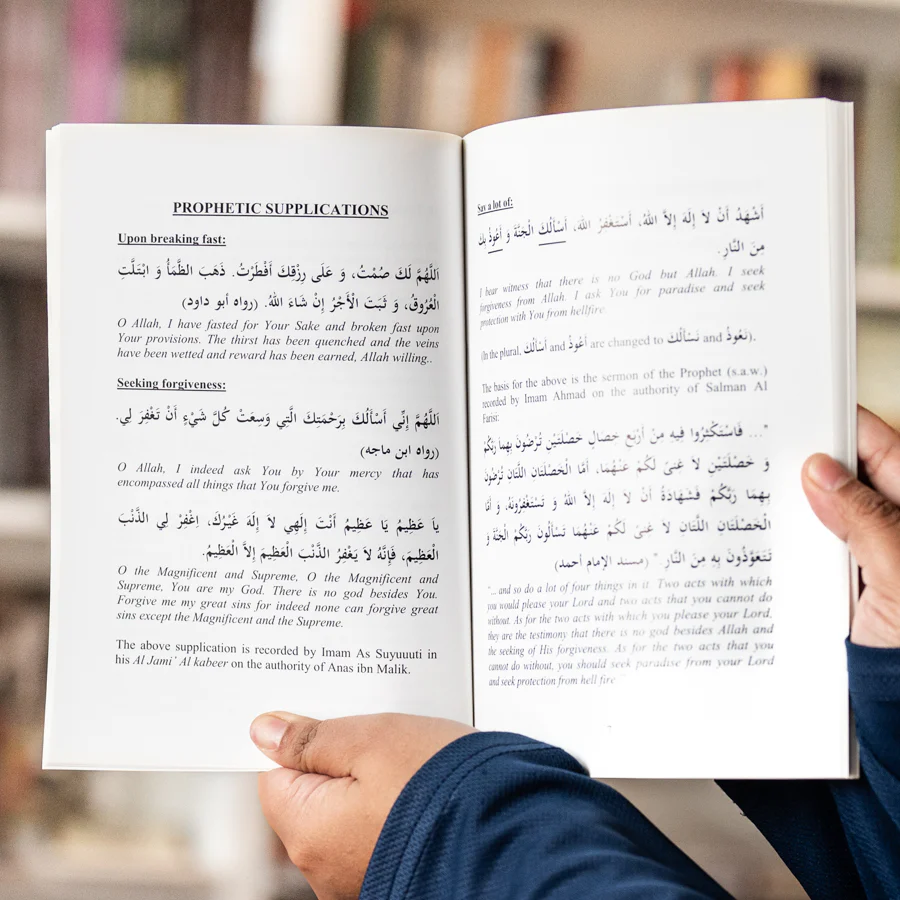 PROPHETIC SUPPLICATIONS
Upon breaking fast:
اَللَّهُمَّ لَكَ صُمْتُ، وَ عَلَى رِزْقِكَ أَفْطَرْتُ. ذَهَبَ الظَّمَأُ وَ ابْتَلَّتِ
الْعُرُوقُ، وَ ثَبَتَ الْأَجْرُ إِنْ شَاءَ اللهُ. (رواه أبو داود)
O Allah, I have fasted for Your Sake and broken fast upon
Your provisions. The thirst has been quenched and the veins
have been wetted and reward has been earned, Allah willing..
Seeking forgiveness:
اَللَّهُمَّ إِنِّي أَسْأَلُكَ بِرَحْمَتِكَ الَّتِي وَسِعَتْ كُلَّ شَيْءٍ أَنْ تَغْفِرَ لِي.
(رواه ابن ماجه)
O Allah, I indeed ask You by Your mercy that has
encompassed all things that You forgive me.
يَا عَظِيمُ يَا عَظِيمُ أَنْتَ إِلَهِي لاَ إِلَهَ غَيْرُكَ، اِغْفِرْ لِي الذَّنْبَ
الْعَظِيمَ، فَإِنَّهُ لاَ يَغْفِرُ الذَّنْبَ الْعَظِيمَ إِلاَّ الْعَظِيمُ.
O the Magnificent and Supreme, O the Magnificent and
Supreme, You are my God. There is no god besides You.
Forgive me my great sins for indeed none can forgive great
sins except the Magnificent and the Supreme.
The above supplication is recorded by Imam As Suyuuti in
his Al Jami' Al kabeer on the authority of Anas ibn Malik.
Say a lot of:
أَشْهَدُ أَنْ لاَ إِلَهَ إِلاَّ اللهُ، أَسْتَغْفِرُ اللهَ، أَسْأَلُكَ الْجَنَّةَ وَ أَعُوذُ بِكَ
مِنَ النَّارِ.
I bear witness that there is no God but Allah. I seek
forgiveness from Allah. I ask You for paradise and seek
protection with You from hellfire.
(In the plural, أَسْأَلُكَ and أَعُوذُ are changed to نَسْأَلُكَ and نَعُوذُ).
The basis for the above is the sermon of the Prophet (s.a.w.)
recorded by Imam Ahmad on the authority of Salman Al
Farisi:
"... فَاسْتَكْثِرُوا فِيهِ مِنْ أَرْبَعِ خِصَالٍ خَصْلَتَيْنِ تُرْضُونَ بِهِمَا رَبَّكُمْ
وَ خَصْلَتَيْنِ لاَ غِنَىً لَكُمْ عَنْهُمَا، أَمَّا الْخَصْلَتَانِ اللَّتَانِ تُرْضُونَ
بِهِمَا رَبَّكُمْ فَشَهَادَةُ أَنْ لاَ إِلَهَ إِلاَّ اللهُ وَ تَسْتَغْفِرُونَهُ، وَ أَمَّا
الْخَصْلَتَانِ اللَّتَانِ لاَ غِنَىً لَكُمْ عَنْهُمَا تَسْأَلُونَ رَبَّكُمُ الْجَنَّةَ وَ
تَتَعَوَّذُونَ بِهِ مِنَ النَّارِ." (مسند الإمام أحمد)
"... and so do a lot of four things in it. Two acts with which
you would please your Lord and two acts that you cannot do
without. As for the two acts with which you please your Lord,
they are the testimony that there is no god besides Allah and
the seeking of His forgiveness. As for the two acts that you
cannot do without, you should seek paradise from your Lord
and seek protection from hell fire